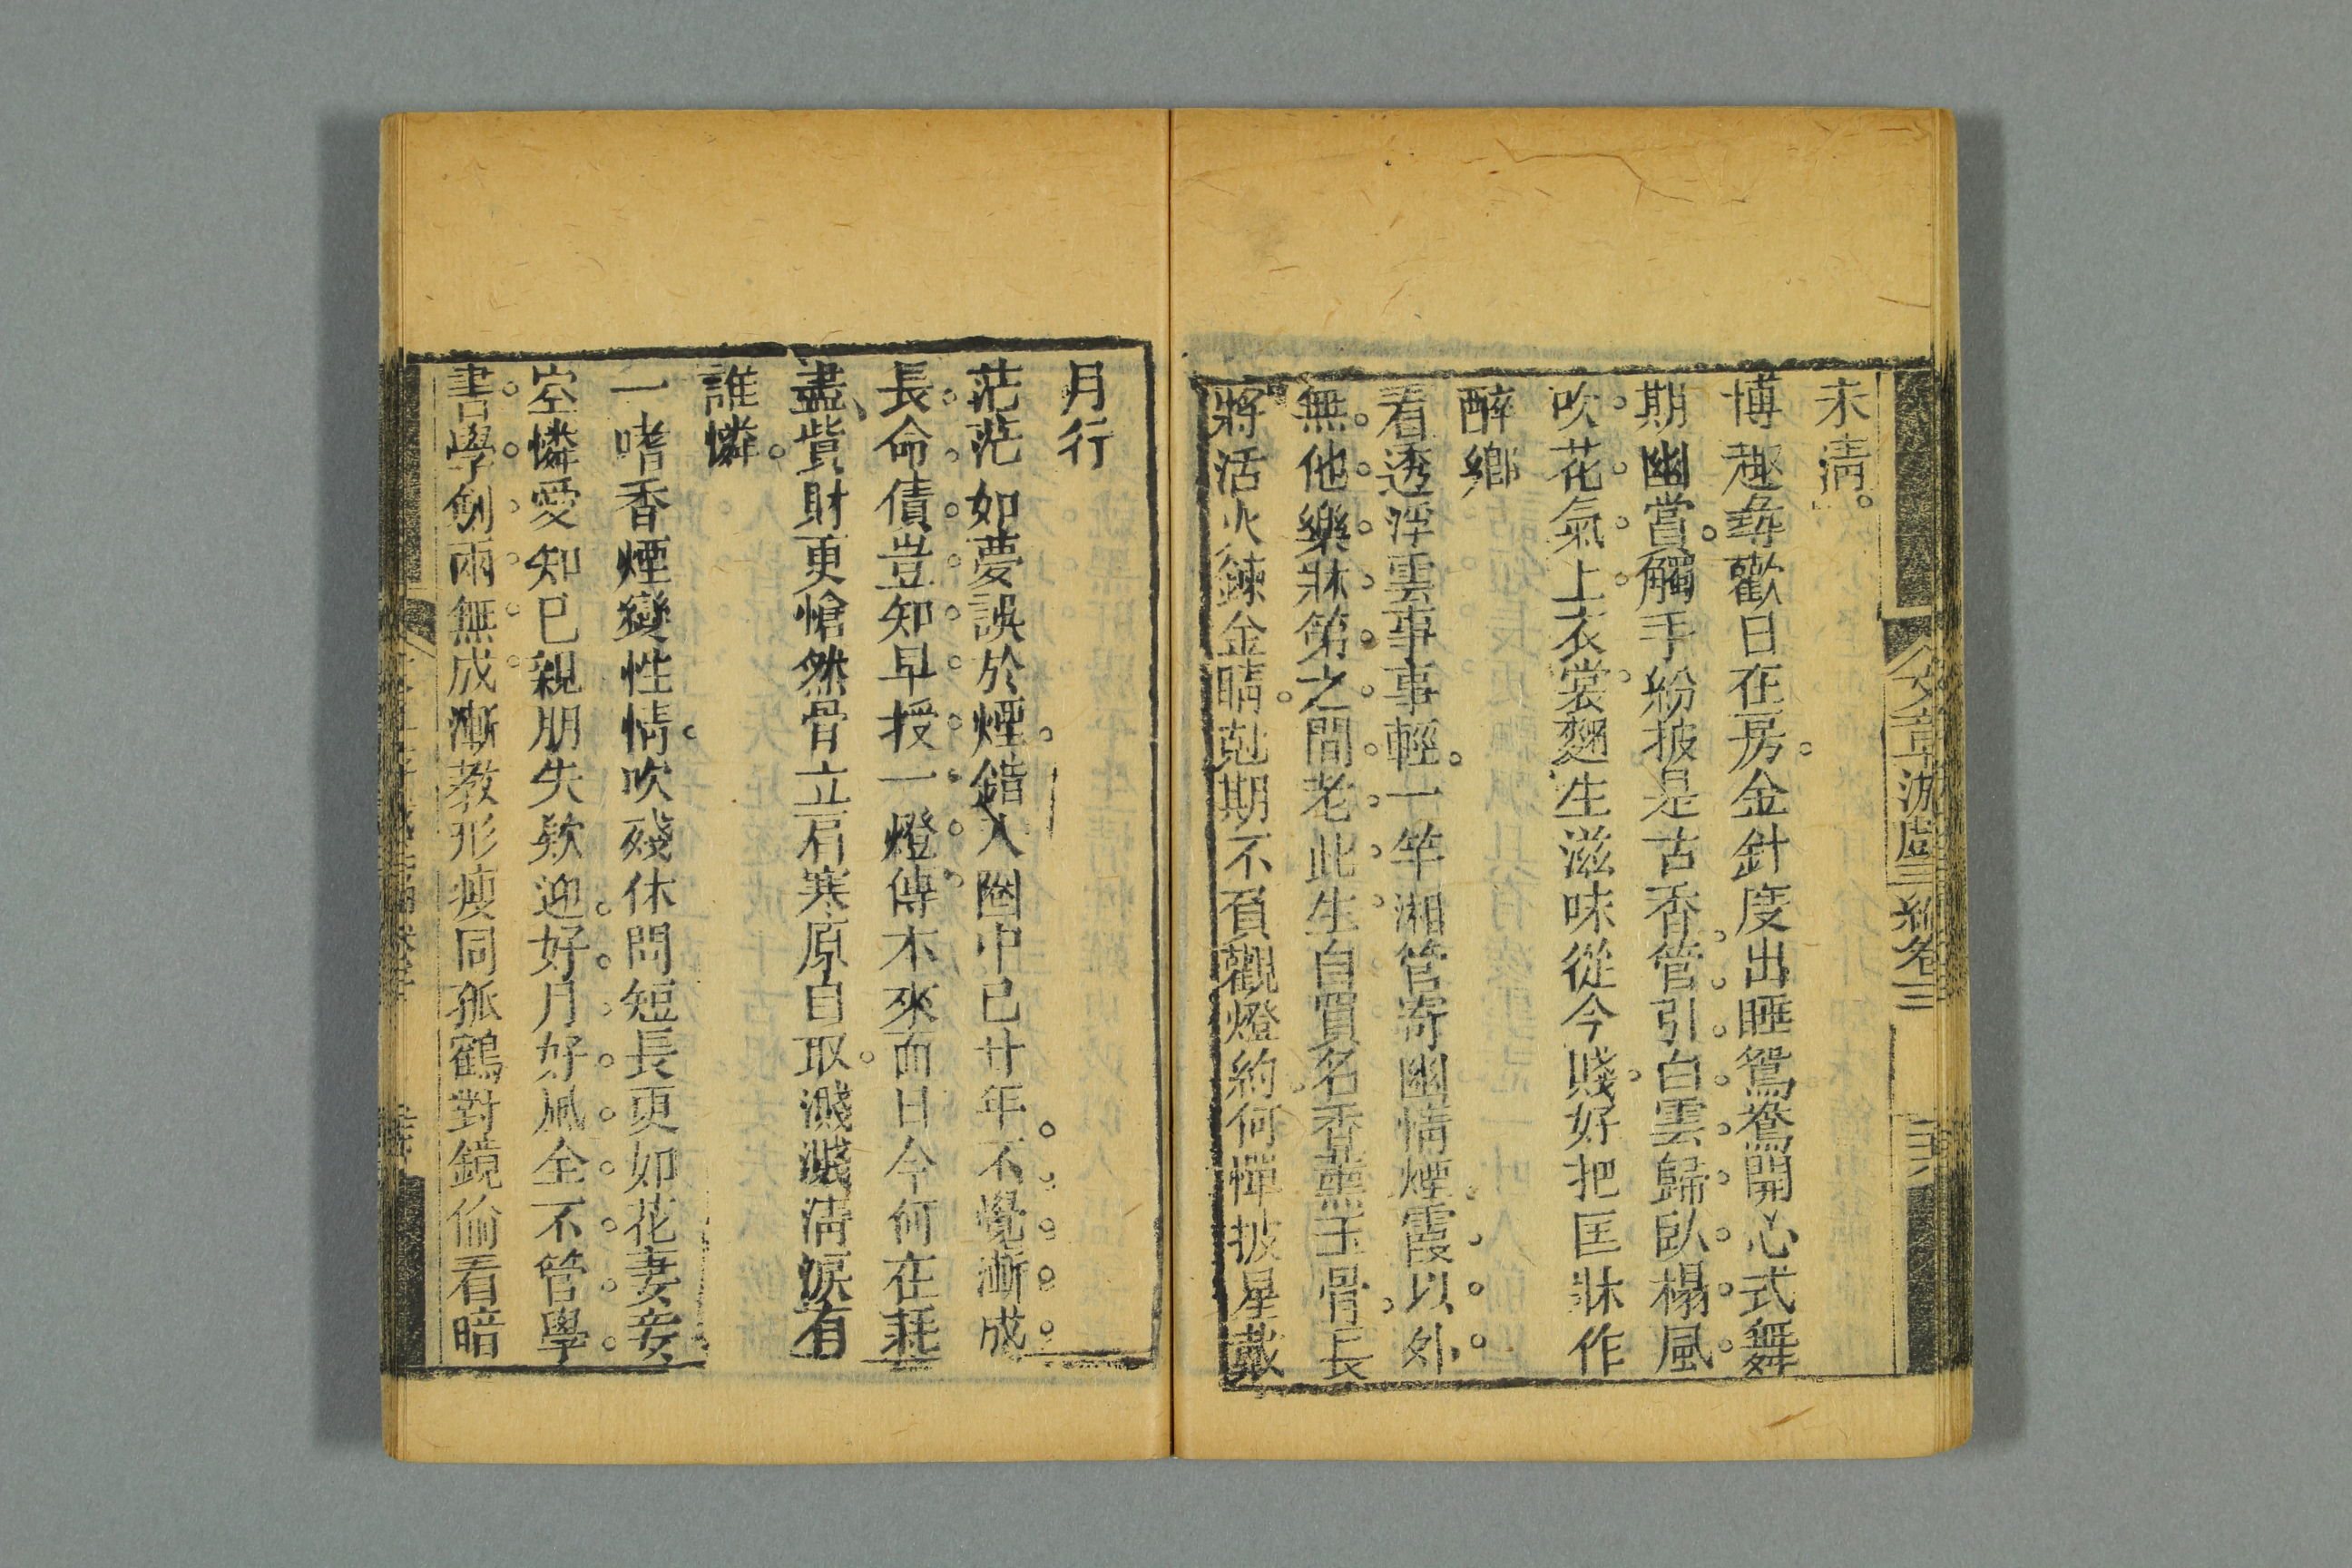 文章游戲三編卷三
未清。
博趣尋歡日在房。金針度出睡鴛鴦開心式舞
期幽賞。觸手紛披是古香管引白雲歸臥榻風
吹花氣上衣裳麴生滋味從今賤好把匡牀作
醉鄉
看透浮雲事事輕。一竿湘管寄幽情煙霞以外
無他樂牀笫之間老此生自買名香薰玉骨。長
將活火鍊金睛。尅期不負觀燈約何憚披星戴
月行
茫茫如夢誤於煙。錯入圈中已廿年不覺漸成
長命債豈知早授一燈傳本來面目今何在耗
盡貲財更愴然骨立肩寒原自取。濺濺清淚有
誰憐。
一嗜香煙變性情。吹殘休問短長更如花妻妾
空憐愛知已親朋失欵迎。好月好風全不管學
書學劍兩無成漸教形瘦同孤鶴對鏡偷看暗